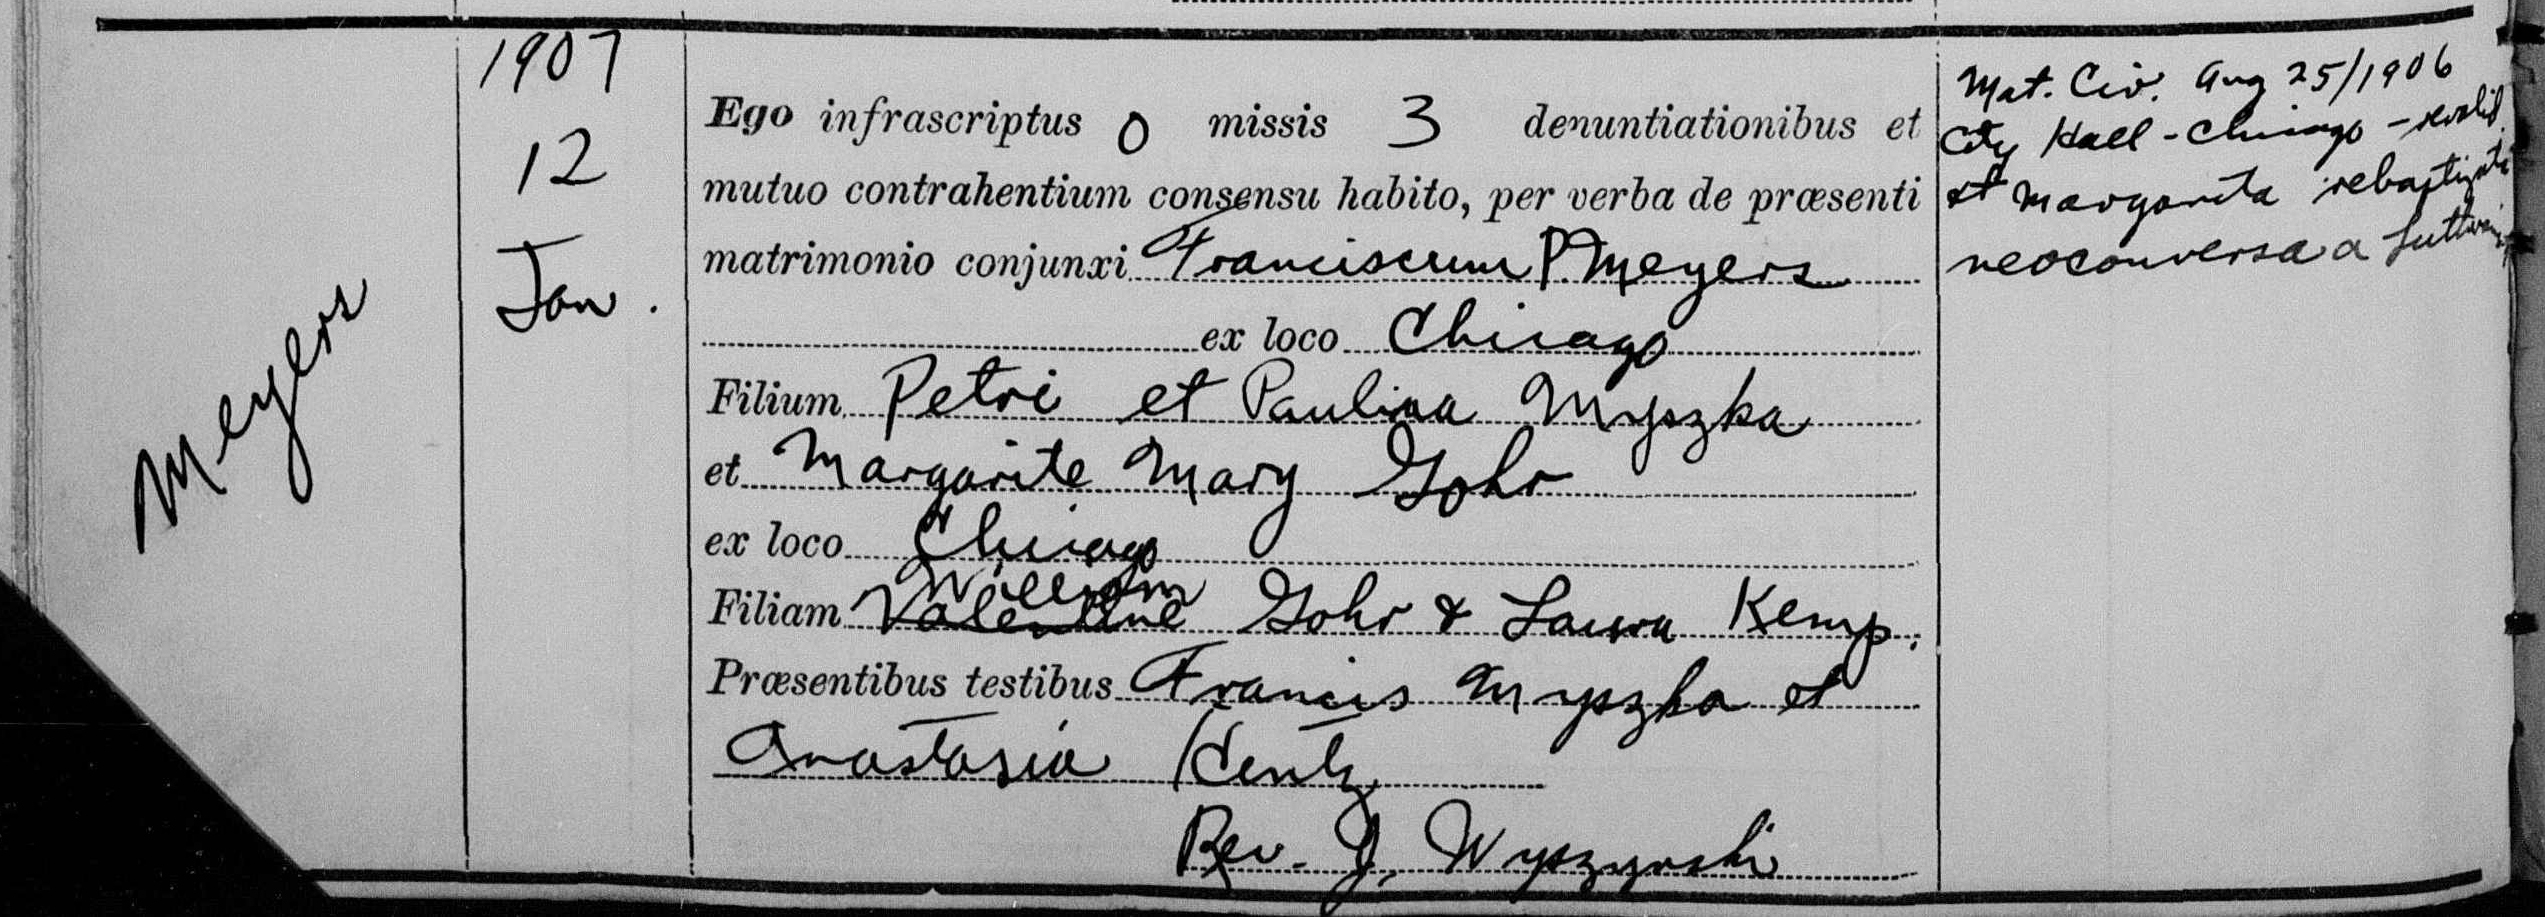 Meyers
1907
12
Jan.
Ego infrascriptus 0 missis 3 denuntiationibus et
mutuo contrahentium consensu habito, per verba de præsenti
matrimonio conjunxi Franciscum P. Meyers
ex loco Chicago
Filium Petri et Paulina Myszka
et Margarite Mary Gohr
ex loco Chicago
William
Filiam Valentine Gohr & Laura Kemp.
Præsentibus testibus Francis Myszka et
Anastasia Kentz
Rev. J. Wyszynski
Mat. Civ. Aug 25/1906
City Hall - Chicago - revalid.
et Margarita rebaptizata
neoconversa a